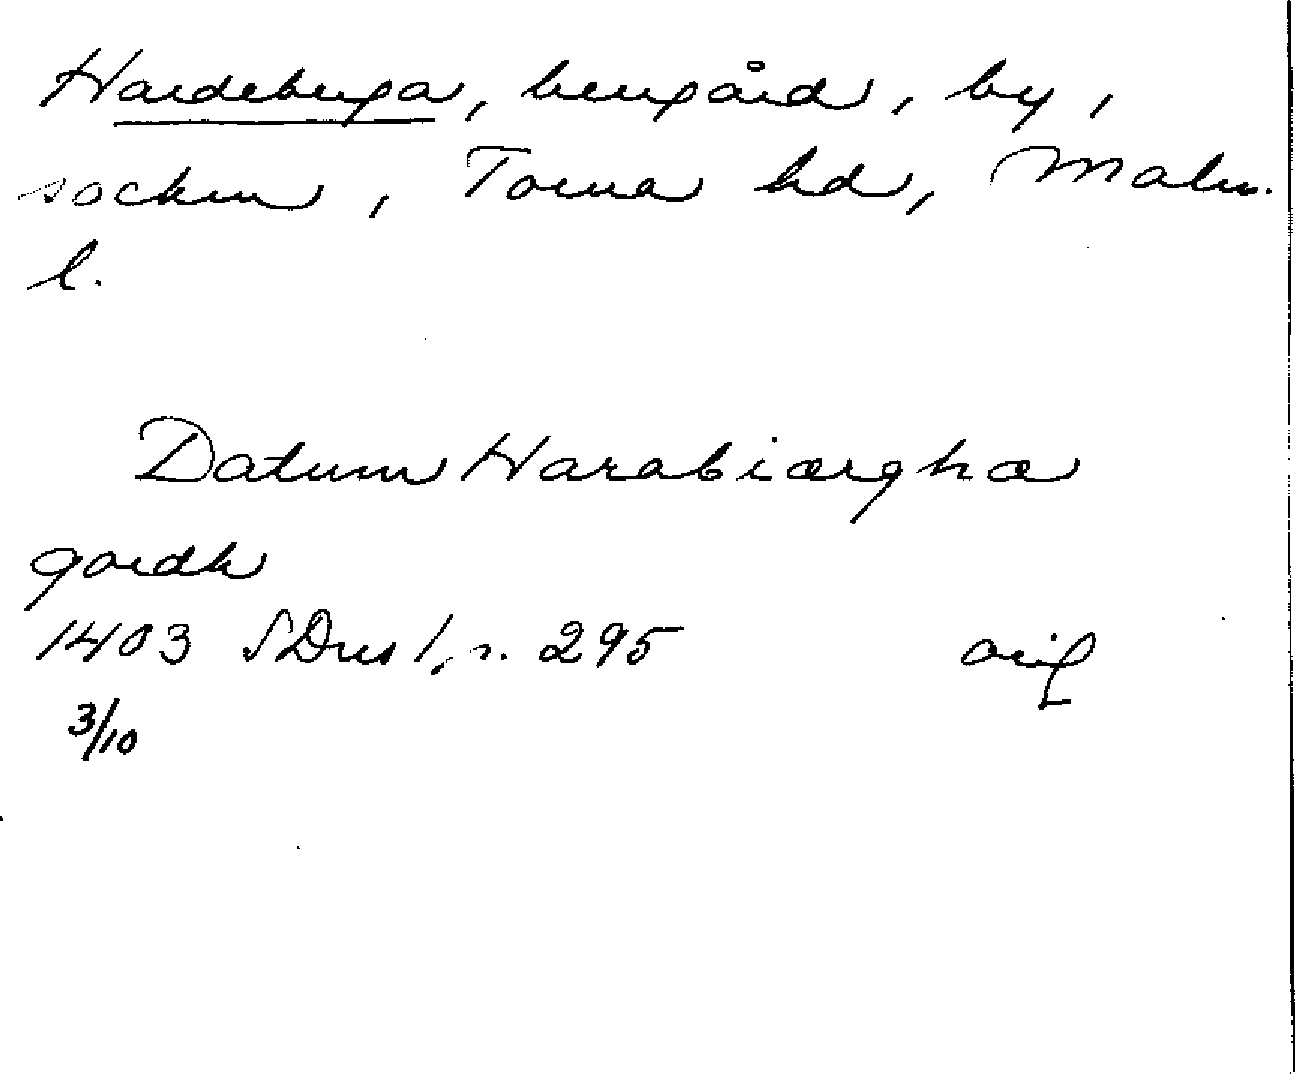 Hardeberga, herrgård, by,
socken, Torna hd, Malm.
l.
Datum Harabiærghæ
gardh
1403 SDns 1, s. 295 orig
3/10